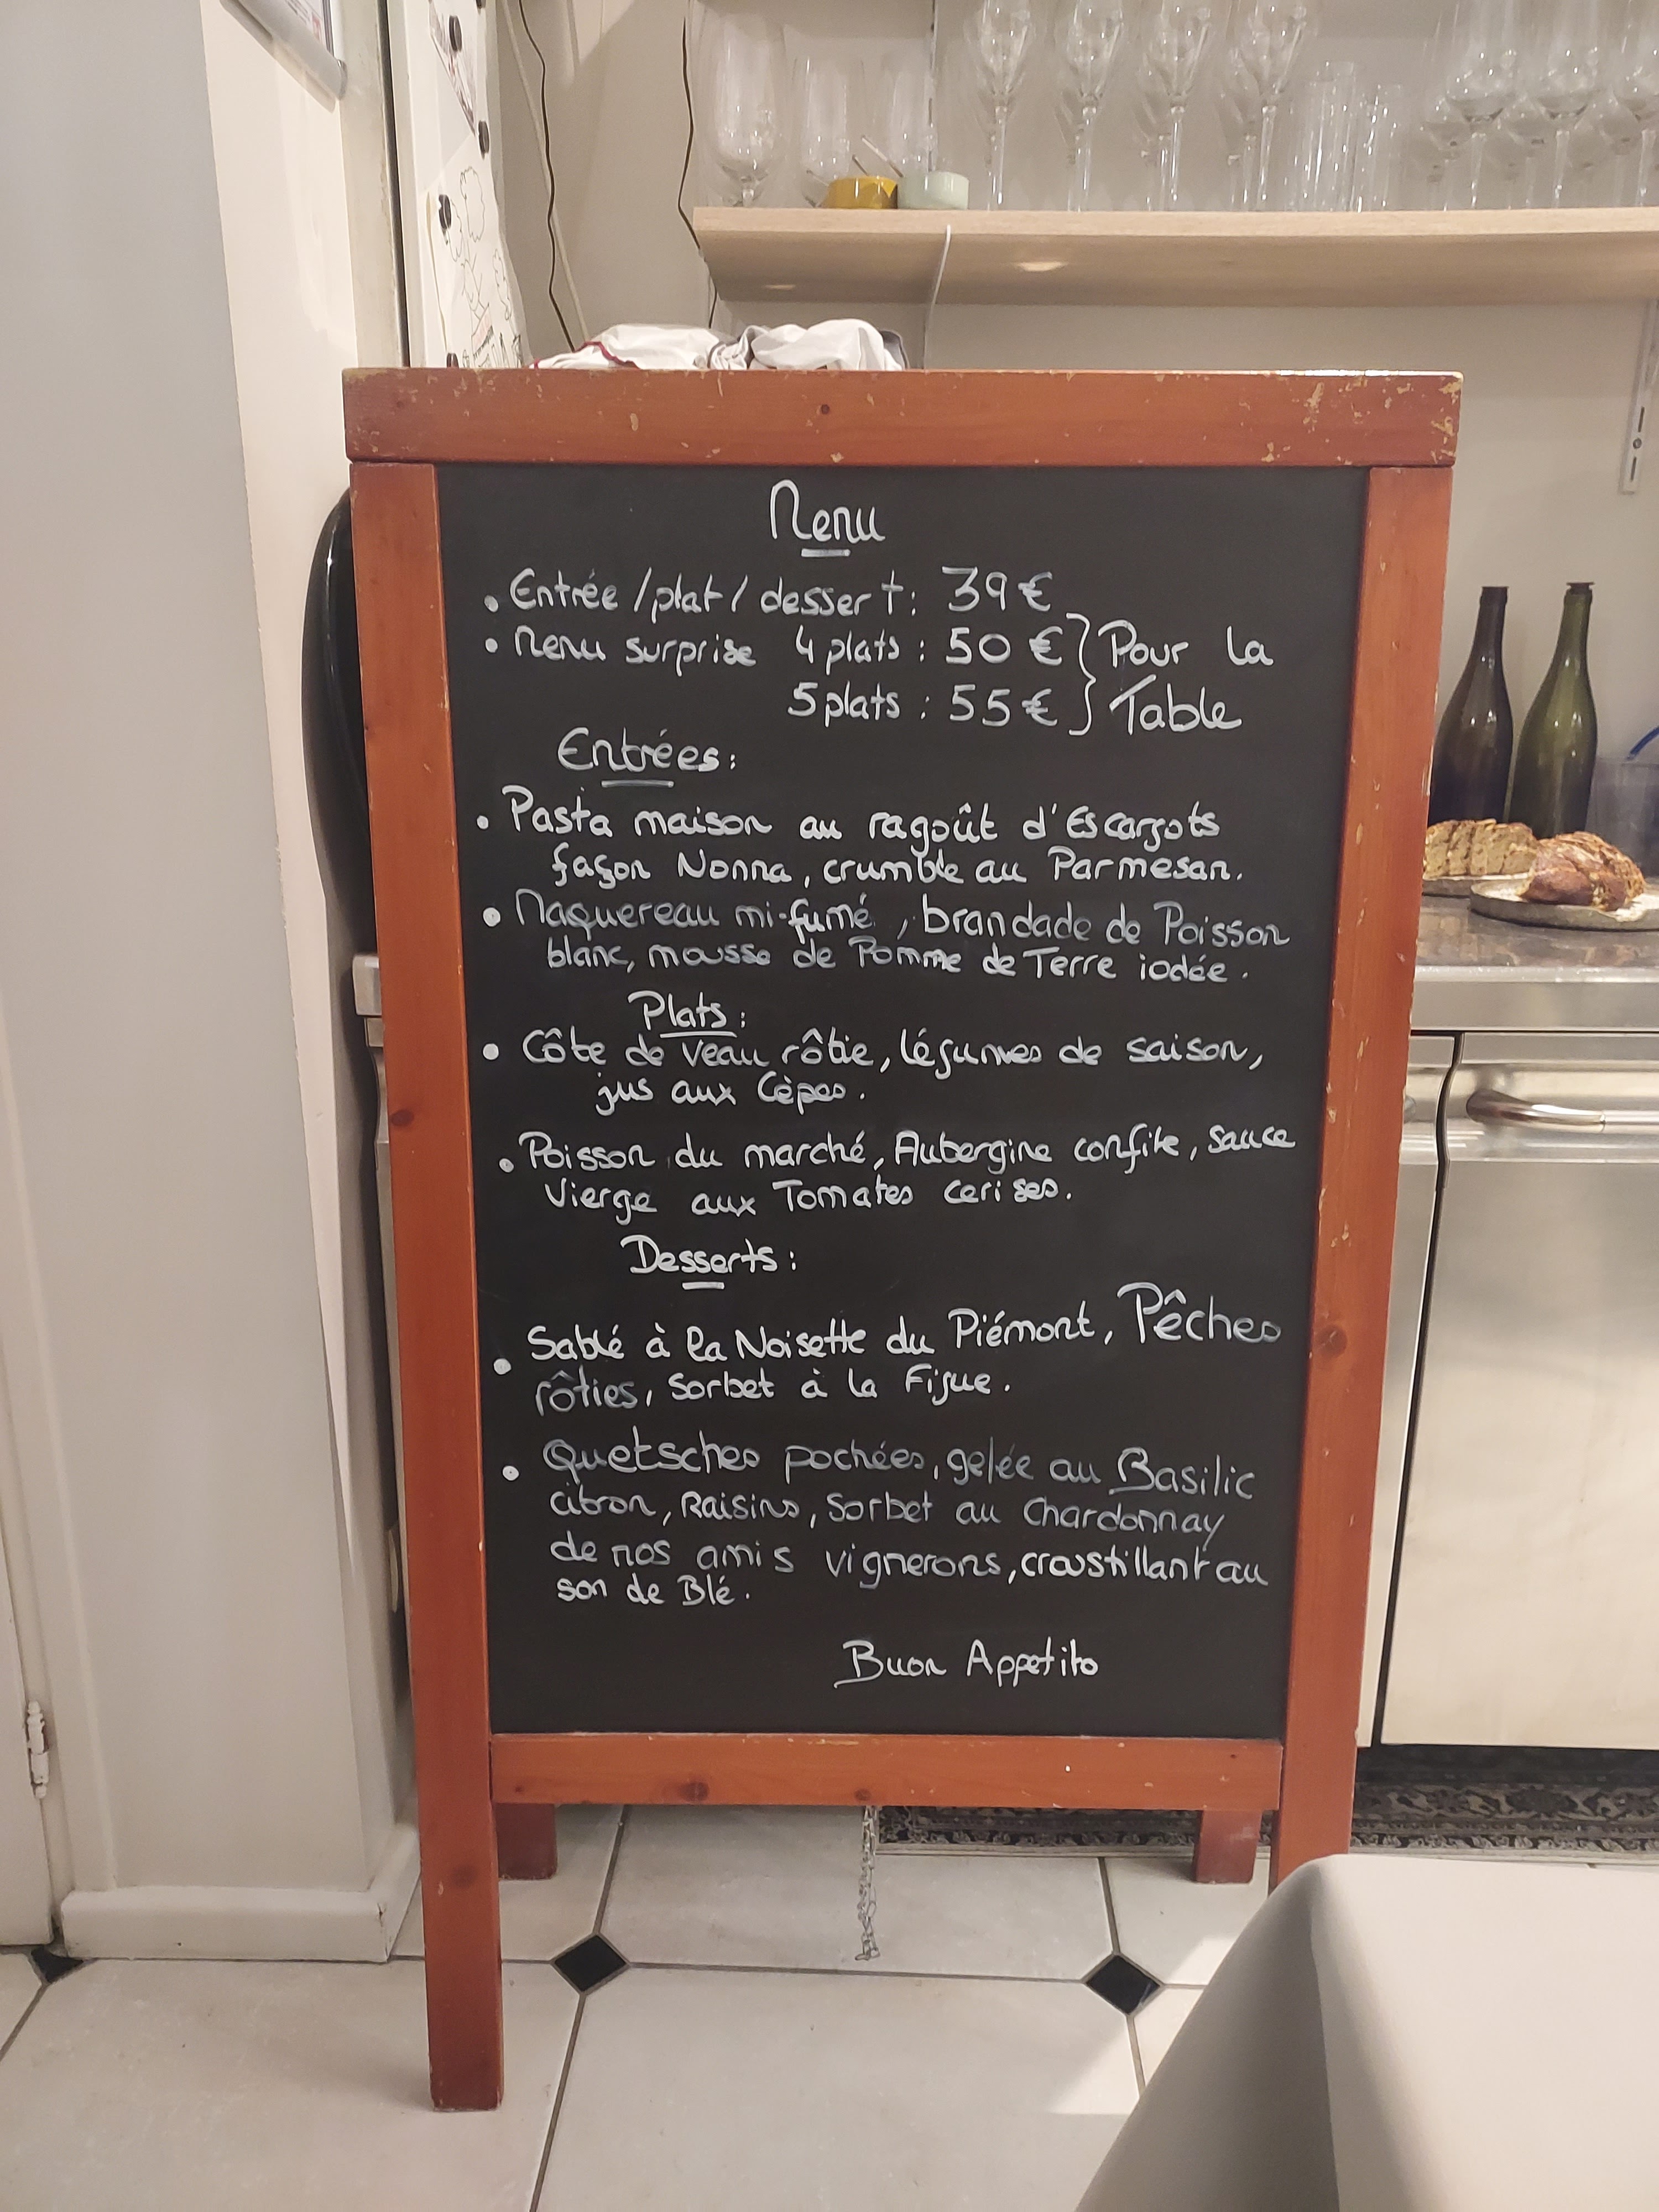 Menu
• Entrée / plat / dessert : 39 €
• Menu surprise 4 plats : 50 € } Pour la
5 plats : 55 € } Table
Entrées :
• Pasta maison au ragoût d'Escargots
façon Nonna, crumble au Parmesan.
• Maquereau mi-fumé, brandade de Poisson
blanc, mousse de Pomme de Terre iodée.
Plats :
• Côte de Veau rôtie, légumes de saison,
jus aux Cèpes.
• Poisson du marché, Aubergine confite, sauce
Vierge aux Tomates cerises.
Desserts :
• Sablé à la Noisette du Piémont, Pêches
rôties, Sorbet à la Figue.
• Quetsches pochées, gelée au Basilic
citron, Raisins, Sorbet au Chardonnay
de nos amis vignerons, croustillant au
son de Blé.
Buon Appetito